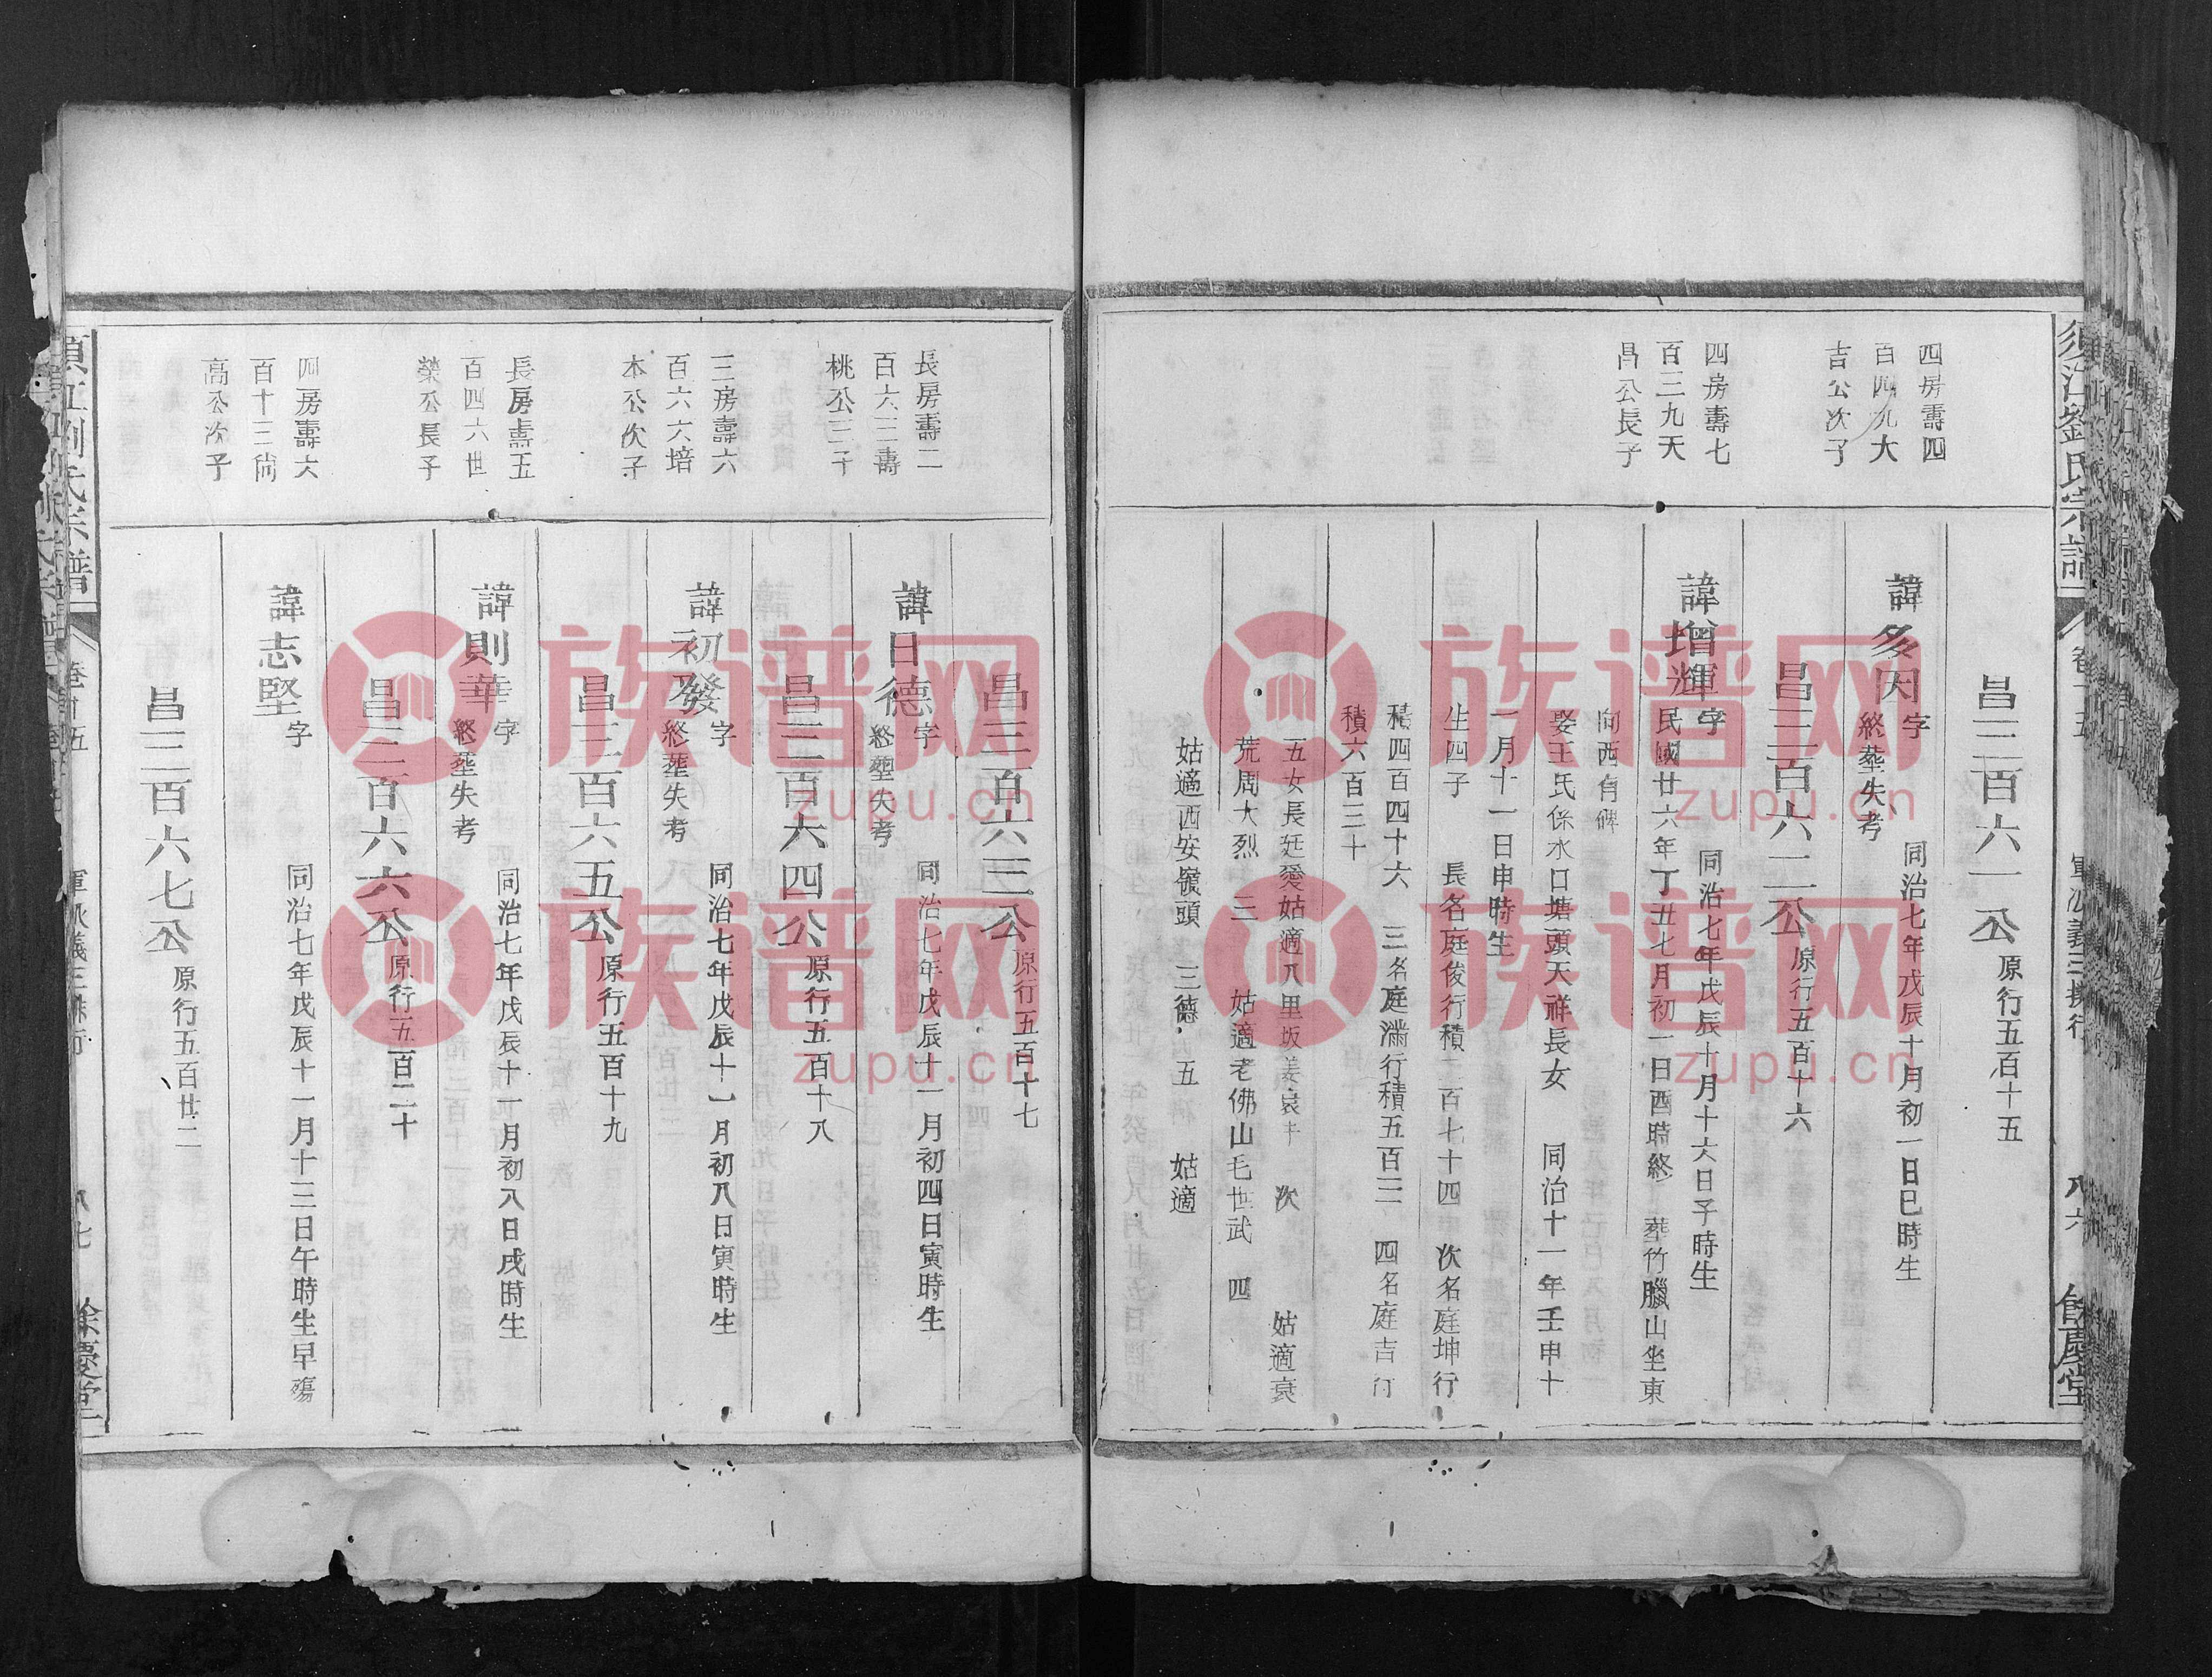 須江劉氏宗譜
卷十五
八六
餘慶堂
昌三百六一公 原行五百十五
四房壽四
百四九大
吉公次子
諱多因 字 同治七年戊辰十月初一日巳時生
終塟失考
昌三百六二公 原行五百十六
四房壽七
百三九天
昌公長子
諱增輝 字 同治七年戊辰十月十六日子時生
民國廿六年丁丑七月初一日酉時終 塟竹臘山坐東
向西有碑
娶王氏係水口塘頭天祥長女 同治十一年壬申十
一月十一日申時生
生四子 長名庭俊行積二百七十四 次名庭坤行
積四百四十六 三名庭滿行積五百三 四名庭吉行
積六百三十
五女長廷愛姑適八里坂姜 次 姑適衰
荒周大烈 三 姑適老佛山毛世武 四
姑適西安嶺頭 三德 五 姑適
昌三百六三公 原行五百十七
長房壽二
百六三壽
桃公三子
諱日德 字 同治七年戊辰十一月初四日寅時生
終塟失考
昌三百六四公 原行五百十八
三房壽六
百六六培
本公次子
諱初發 字 同治七年戊辰十一月初八日寅時生
終塟失考
昌三百六五公 原行五百十九
長房壽五
百四六世
榮公長子
諱則華 字 同治七年戊辰十一月初八日戌時生
終塟失考
昌三百六六公 原行五百二十
四房壽六
百十三尚
高公次子
諱志堅 字 同治七年戊辰十一月十三日午時生早殤
昌三百六七公 原行五百廿二
須江劉氏宗譜
卷十五
八七
餘慶堂
族谱网
zupu.cn
族谱网
zupu.cn
族谱网
zupu.cn
族谱网
zupu.cn